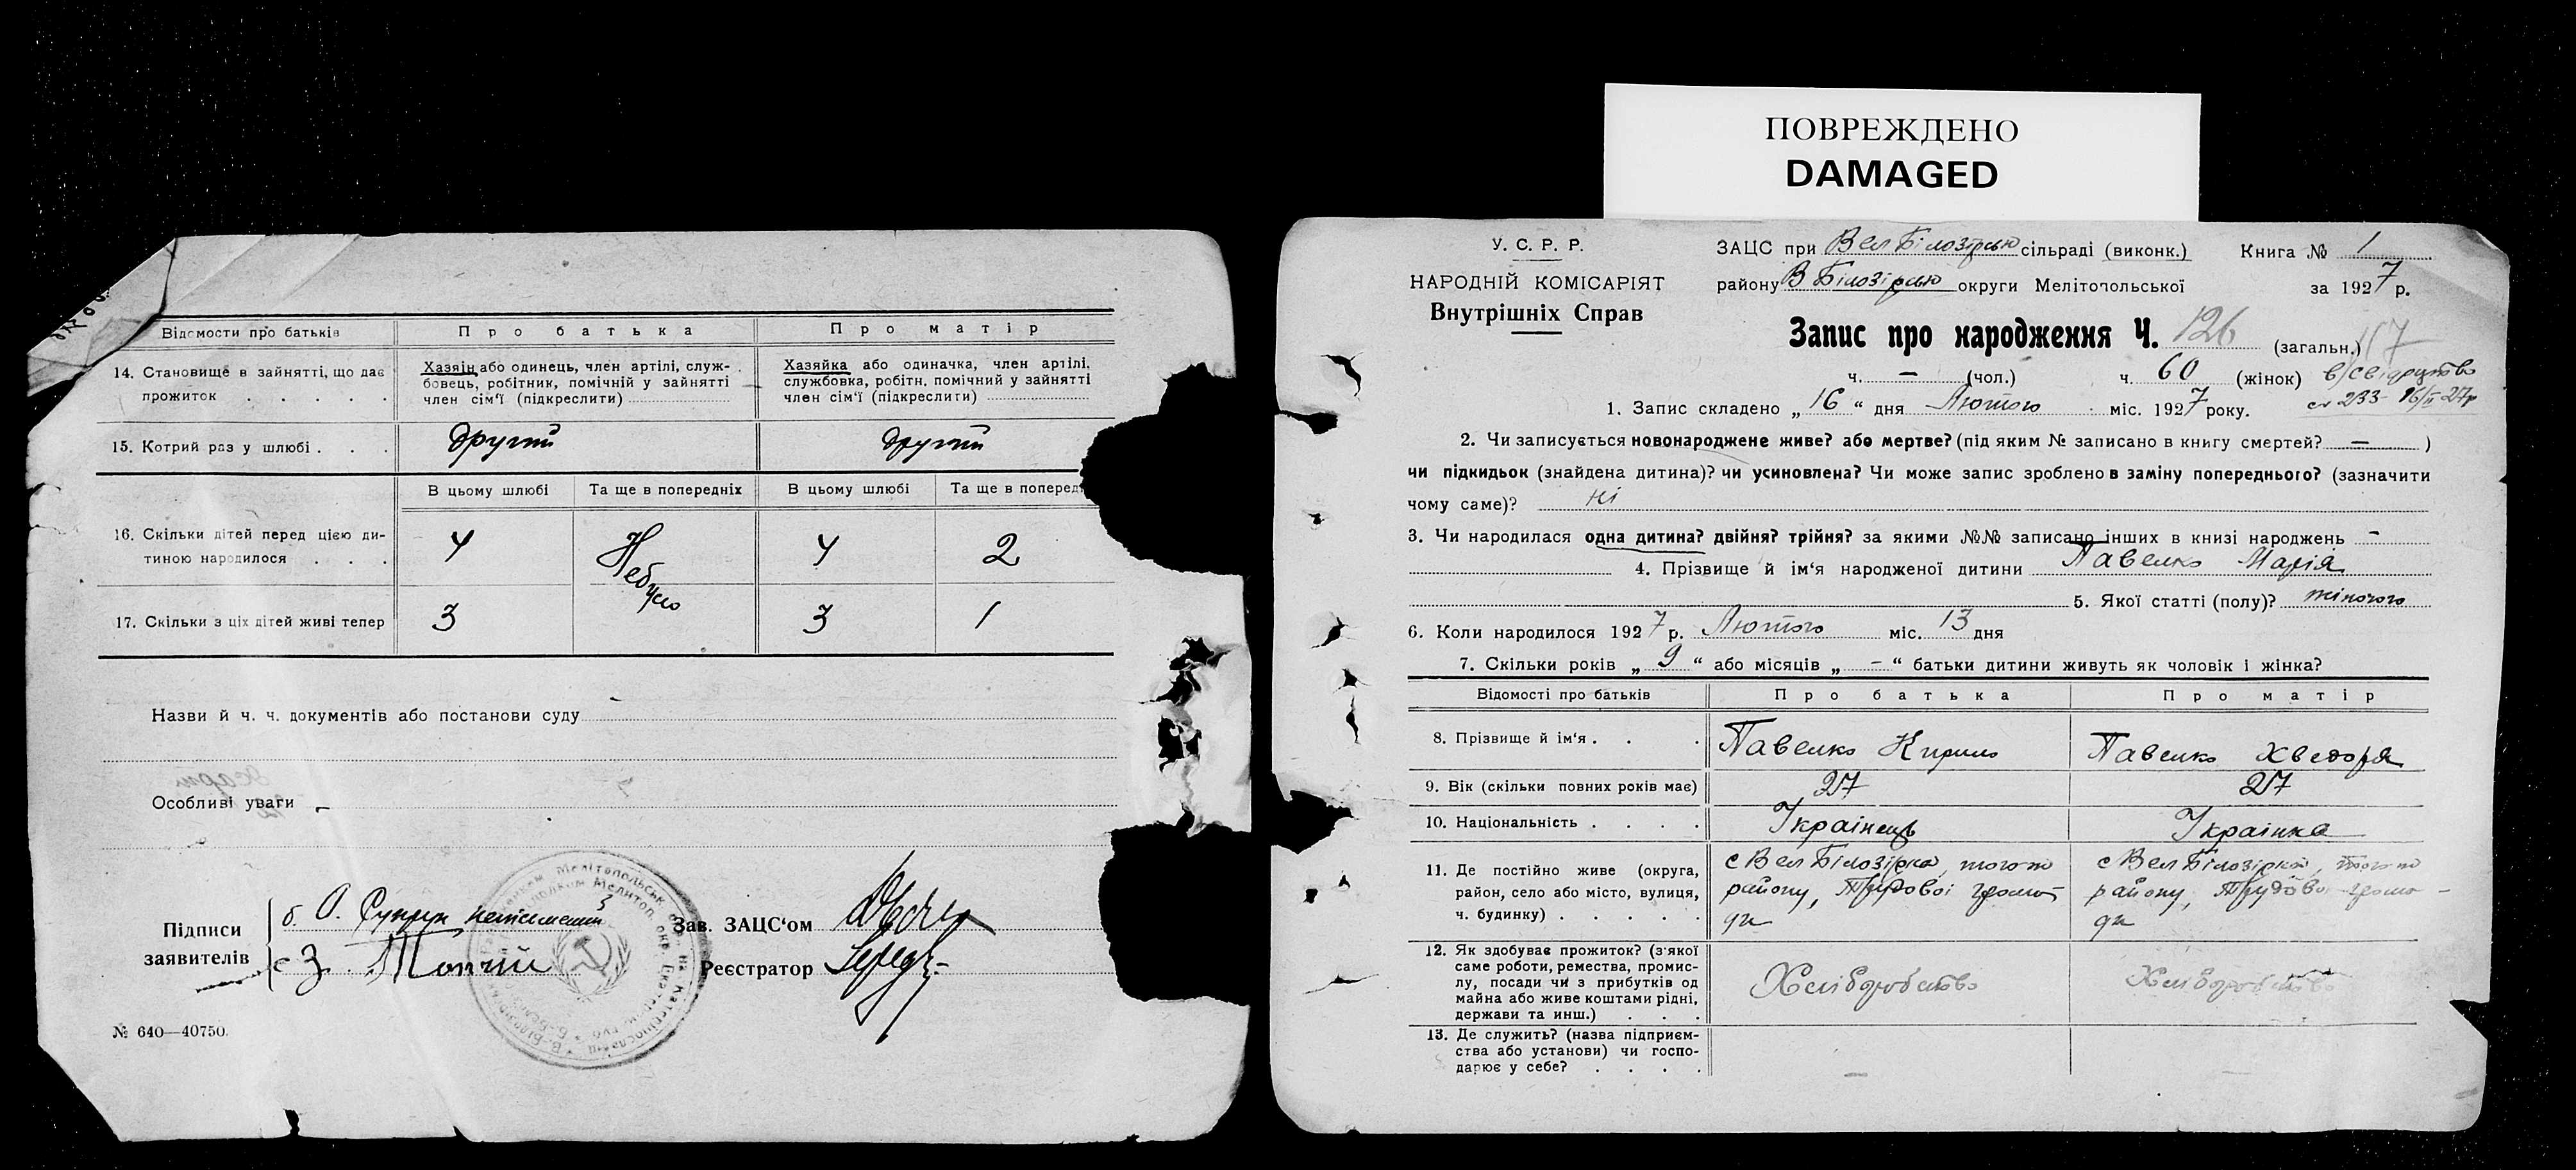 ПОВРЕЖДЕНО
DAMAGED
Відомости про батьків Про батька Про матір
14. Становище в зайнятті, що дає прожиток . . . . .
Хазяін або одинець, член артілі, служ-
бовець, робітник, помічній у зайнятті
член сім'ї (підкреслити)
Хазяйка або одиначка, член артілі,
службовка, робітн. помічний у зайнятті
член сім'ї (підкреслити)
15. Котрий раз у шлюбі . . . другий другий
В цьому шлюбі Та ще в попередніх В цьому шлюбі Та ще в поперед
16. Скільки дітей перед цією ди-
тиною народилося . . . 4 Небуло 4 2
17. Скільки з ціх дітей живі тепер 3 3 1
Назви й ч. ч. документів або постанови суду
Особливі уваги –
Підписи
заявителів
б. О.
с З.
Зав. ЗАЦС'ом
Реєстратор
№ 640—40750.
У. С. Р. Р.
НАРОДНІЙ КОМІСАРІЯТ
Внутрішніх Справ
ЗАЦС при Вел Білозірсью сільраді (виконк.) Книга № 1
району В Білозірсью округи Мелітопольської за 1927 р.
Запис про народження Ч. 126 (загальн.) 117
ч. – (чол.) ч. 60 (жінок)
ст 233 16/II 27р
1. Запис складено „16“ дня Лютого міс. 1927 року.
2. Чи записується новонароджене живе? або мертве? (під яким № записано в книгу смертей? — )
чи підкидьок (знайдена дитина)? чи усиновлена? Чи може запис зроблено в заміну попереднього? (зазначити
чому саме)? ні
3. Чи народилася одна дитина? двійня? трійня? за якими №№ записано інших в книзі народжень –
4. Прізвище й ім'я народженої дитини Павелко Марія
5. Якої статті (полу)? жіночого
6. Коли народилося 1927 р. Лютого міс. 13 дня
7. Скільки років „9“ або місяців „–“ батьки дитини живуть як чоловік і жінка?
Відомості про батьків Про батька Про матір
8. Прізвище й ім'я . . . Павелко Кирило Павелко Хведора
9. Вік (скільки повних років має) 27 27
10. Національність . . . . Українець Українка
11. Де постійно живе (округа,
район, село або місто, вулиця,
ч. будинку) . . . . .
с Вел Білозірка, того ж
району, Трудовоі грома-
ди
с Вел Білозірка, того ж
району, Трудовоі грома-
ди
12. Як здобуває прожиток? (з'якої
саме роботи, ремества, промис-
лу, посади чи з прибутків од
майна або живе коштами рідні,
держави та инш.) . . .
Хліборобство Хліборобство
13. Де служить? (назва підприєм-
ства або установи) чи госпо-
дарює у себе? . . . . – –